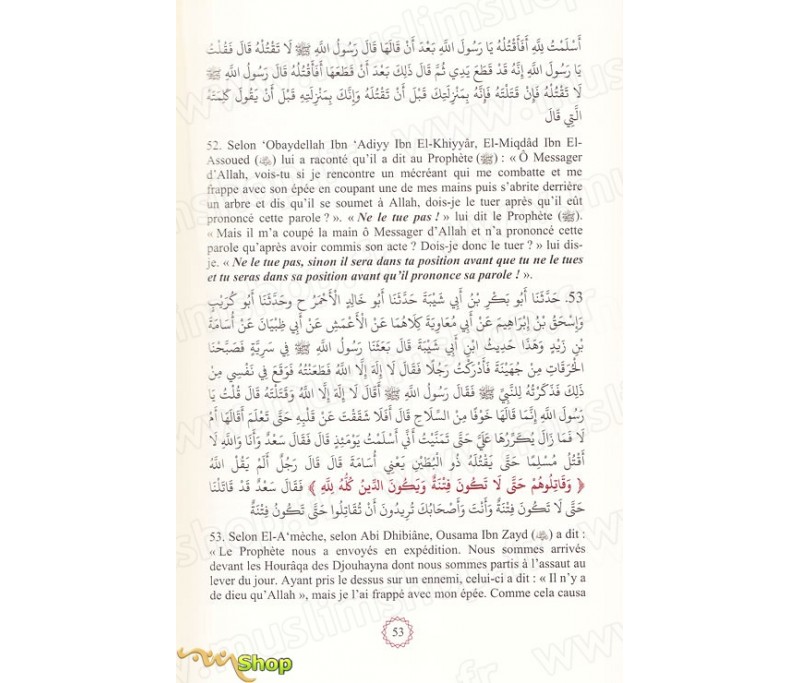 أَسْلَمْتُ لِلَّهِ أَفَأَقْتُلُهُ يَا رَسُولَ اللَّهِ بَعْدَ أَنْ قَالَهَا قَالَ رَسُولُ اللَّهِ ﷺ لَا تَقْتُلْهُ قَالَ فَقُلْتُ
يَا رَسُولَ اللَّهِ إِنَّهُ قَدْ قَطَعَ يَدِي ثُمَّ قَالَ ذَلِكَ بَعْدَ أَنْ قَطَعَهَا أَفَأَقْتُلُهُ قَالَ رَسُولُ اللَّهِ ﷺ
لَا تَقْتُلْهُ فَإِنْ قَتَلْتَهُ فَإِنَّهُ بِمَنْزِلَتِكَ قَبْلَ أَنْ تَقْتُلَهُ وَإِنَّكَ بِمَنْزِلَتِهِ قَبْلَ أَنْ يَقُولَ كَلِمَتَهُ
الَّتِي قَالَ
52. Selon ‘Obaydellah Ibn ‘Adiyy Ibn El-Khiyyâr, El-Miqdâd Ibn El-
Assoued (﵁) lui a raconté qu’il a dit au Prophète (ﷺ) : « Ô Messager
d’Allah, vois-tu si je rencontre un mécréant qui me combatte et me
frappe avec son épée en coupant une de mes mains puis s’abrite derrière
un arbre et dis qu’il se soumet à Allah, dois-je le tuer après qu’il eût
prononcé cette parole ? ». « Ne le tue pas ! » lui dit le Prophète (ﷺ).
« Mais il m’a coupé la main ô Messager d’Allah et n’a prononcé cette
parole qu’après avoir commis son acte ? Dois-je donc le tuer ? » lui dis-
je. « Ne le tue pas, sinon il sera dans ta position avant que tu ne le tues
et tu seras dans sa position avant qu’il prononce sa parole ! ».
53. حَدَّثَنَا أَبُو بَكْرِ بْنُ أَبِي شَيْبَةَ حَدَّثَنَا أَبُو خَالِدٍ الْأَحْمَرُ ح وحَدَّثَنَا أَبُو كُرَيْبٍ
وَإِسْحَقُ بْنُ إِبْرَاهِيمَ عَنْ أَبِي مُعَاوِيَةَ كِلَاهُمَا عَنْ الْأَعْمَشِ عَنْ أَبِي ظِبْيَانَ عَنْ أُسَامَةَ
بْنِ زَيْدٍ وَهَذَا حَدِيثُ ابْنِ أَبِي شَيْبَةَ قَالَ بَعَثَنَا رَسُولُ اللَّهِ ﷺ فِي سَرِيَّةٍ فَصَبَّحْنَا
الْحُرَقَاتِ مِنْ جُهَيْنَةَ فَأَدْرَكْتُ رَجُلًا فَقَالَ لَا إِلَهَ إِلَّا اللَّهُ فَطَعَنْتُهُ فَوَقَعَ فِي نَفْسِي مِنْ
ذَلِكَ فَذَكَرْتُهُ لِلنَّبِيِّ ﷺ فَقَالَ رَسُولُ اللَّهِ ﷺ أَقَالَ لَا إِلَهَ إِلَّا اللَّهُ وَقَتَلْتَهُ قَالَ قُلْتُ يَا
رَسُولَ اللَّهِ إِنَّمَا قَالَهَا خَوْفًا مِنْ السِّلَاحِ قَالَ أَفَلَا شَقَقْتَ عَنْ قَلْبِهِ حَتَّى تَعْلَمَ أَقَالَهَا أَمْ
لَا فَمَا زَالَ يُكَرِّرُهَا عَلَيَّ حَتَّى تَمَنَّيْتُ أَنِّي أَسْلَمْتُ يَوْمَئِذٍ قَالَ فَقَالَ سَعْدٌ وَأَنَا وَاللَّهِ لَا
أَقْتُلُ مُسْلِمًا حَتَّى يَقْتُلَهُ ذُو الْبُطَيْنِ يَعْنِي أُسَامَةَ قَالَ قَالَ رَجُلٌ أَلَمْ يَقُلْ اللَّهُ
﴿ وَقَاتِلُوهُمْ حَتَّى لَا تَكُونَ فِتْنَةٌ وَيَكُونَ الدِّينُ كُلُّهُ لِلَّهِ ﴾ فَقَالَ سَعْدٌ قَدْ قَاتَلْنَا
حَتَّى لَا تَكُونَ فِتْنَةٌ وَأَنْتَ وَأَصْحَابُكَ تُرِيدُونَ أَنْ تُقَاتِلُوا حَتَّى تَكُونُ فِتْنَةٌ
53. Selon El-A‘mèche, selon Abi Dhibiâne, Ousama Ibn Zayd (﵁) a dit :
« Le Prophète nous a envoyés en expédition. Nous sommes arrivés
devant les Hourâqa des Djouhayna dont nous sommes partis à l’assaut au
lever du jour. Ayant pris le dessus sur un ennemi, celui-ci a dit : « Il n’y a
de dieu qu’Allah », mais je l’ai frappé avec mon épée. Comme cela causa
53
Shop